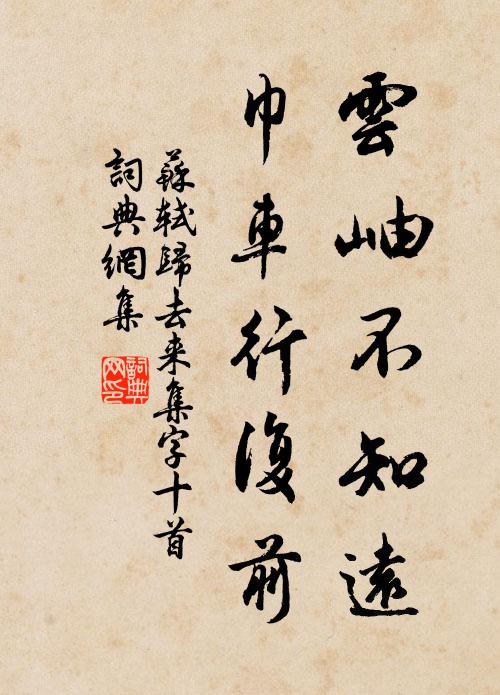 雲岫不知遠
巾車行復前
蘇軾歸去来集字十首
詞典網集
詞典網印